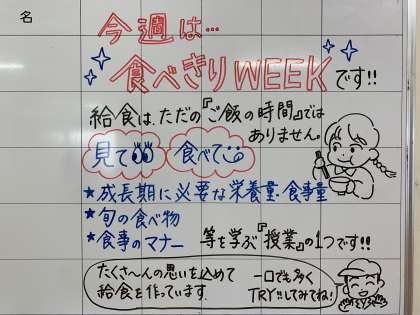 名
今週は…
食べきりWEEKです!!
給食は、ただの『ご飯の時間』では
ありません。
見て 食べて
★成長期に必要な栄養量・食事量
★旬の食べ物
★食事のマナー 等を学ぶ『授業』の1つです!!
たくさ〜んの思いを込めて
給食を作っています。
一口でも多く
TRY!!してみてね!